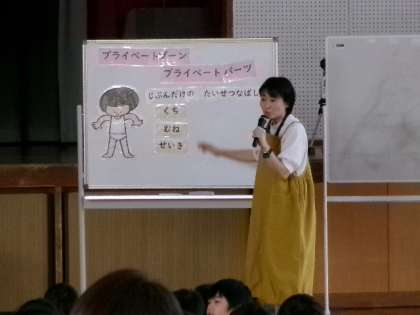 プライベートゾーン
プライベートパーツ
じぶんだけの たいせつなばしょ
くち
むね
せいき